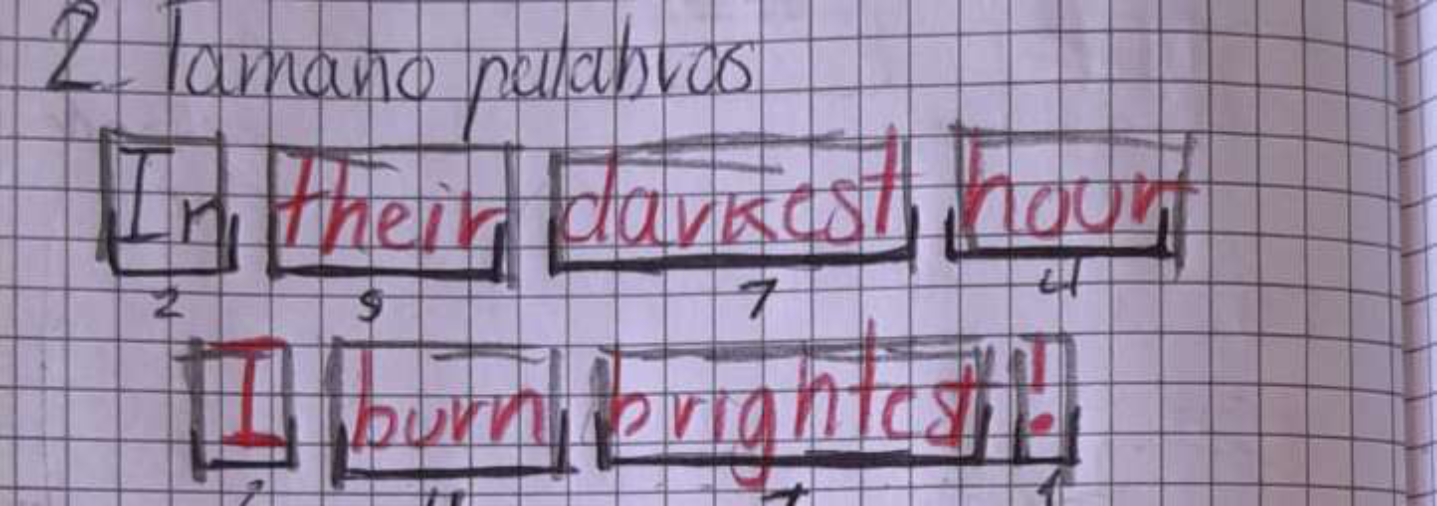 2. Tamaño palabras
In their darkest hour
2 5 7 4
I burn brightest !
1 4 7 1